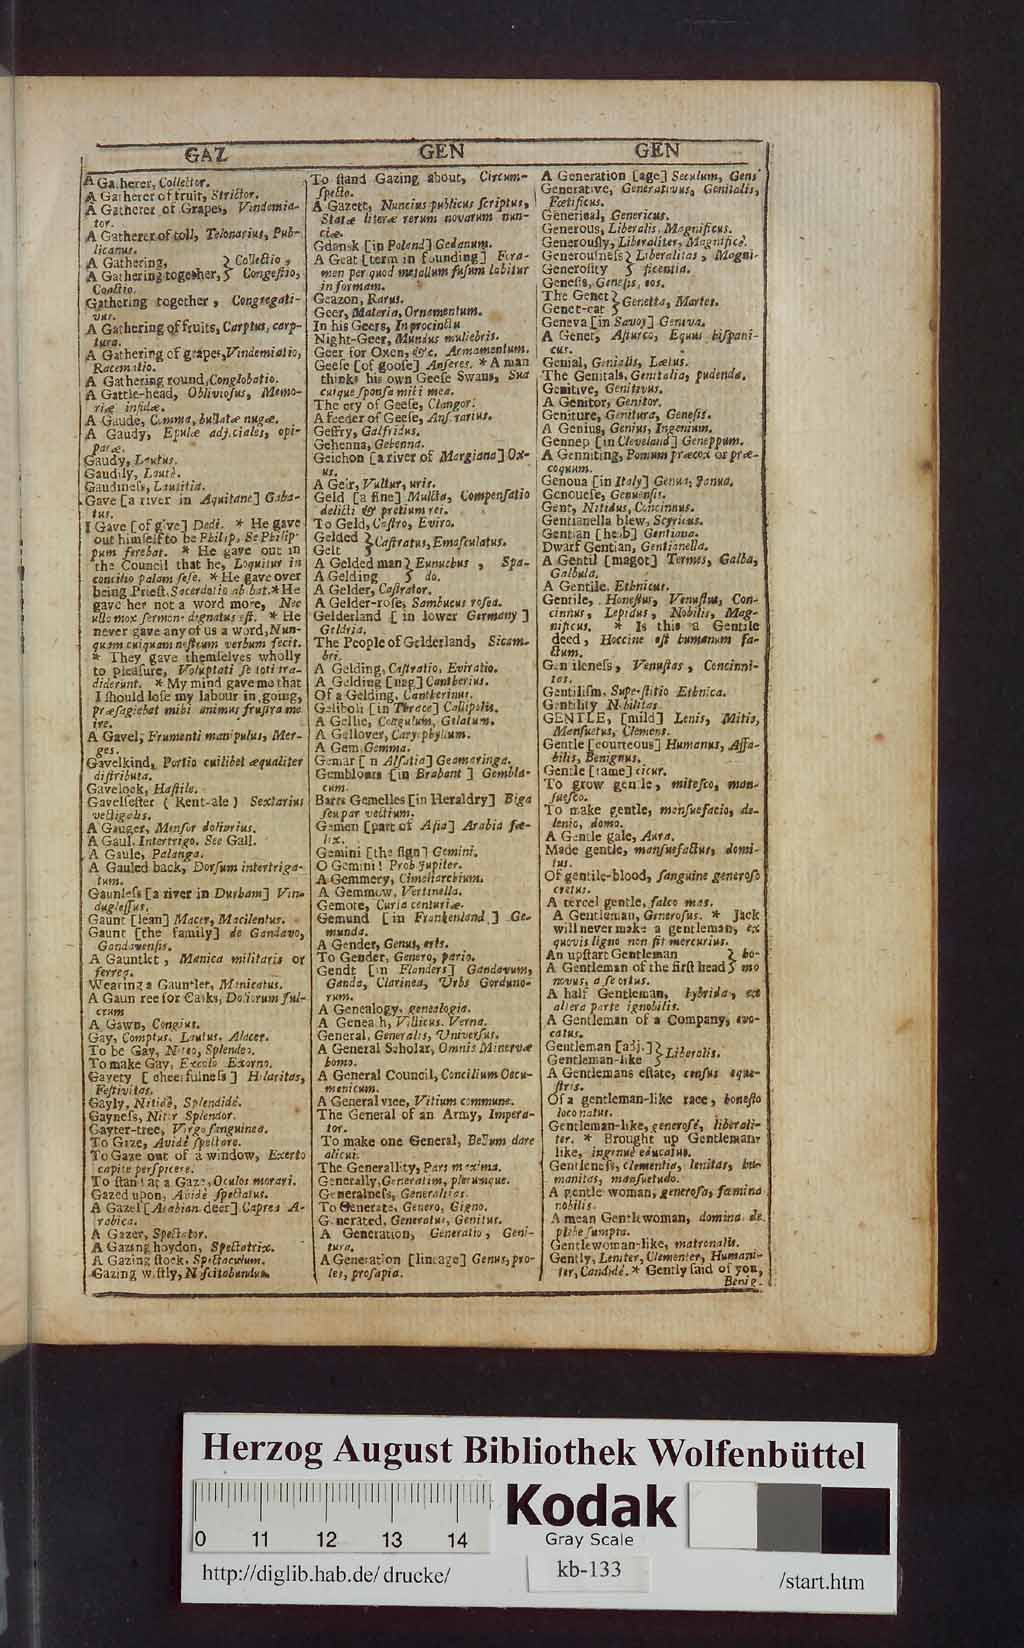 GAZ
A Gatherer, Collector.
A Gatherer of fruit, Strictor.
A Gatherer of Grapes, Vindemia-
tor.
A Gatherer of toll, Telonarius, Pub-
licanus.
A Gathering, } Collectio,
A Gathering together, } Congestio,
Coactio.
Gathering together, Congregati-
vus.
A Gathering of fruits, Carptus, carp-
tura.
A Gathering of grapes, Vindemiatio,
Racematio.
A Gathering round, Conglobatio.
A Gattle-head, Obliviosus, Memo-
riæ infidæ.
A Gaude, Comma, bullatæ nugæ.
A Gaudy, Epulæ adjiciales, opi-
paræ.
Gaudy, Lautus.
Gaudily, Lautè.
Gaudiness, Lautitia.
Gave [a river in Aquitane] Gaba-
tus.
I Gave [of give] Dedi. * He gave
out himself to be Philip, Se Philip-
pum ferebat. * He gave out in
the Council that he, Loquitur in
concilio palam sese. * He gave over
being Priest, Sacerdotio abibat. * He
gave her not a word more, Nec
ullo mox sermone dignatus est. * He
never gave any of us a word, Nun-
quam cuiquam nostrum verbum fecit.
* They gave themselves wholly
to pleasure, Voluptati se toti tra-
diderunt. * My mind gave me that
I should lose my labour in going,
præsagiebat mihi animus frustra me
ire.
A Gavel, Frumenti manipulus, Mer-
ges.
Gavelkind, Portio cuilibet æqualiter
distributa.
Gavelock, Hastile.
Gavelsester (Rent-ale) Sextarius
vectigalis.
A Gauger, Mensor doliarius.
A Gaul, Intertrigo. See Gall.
A Gaule, Palanga.
A Gauled back, Dorsum intertriga-
tum.
Gaunless [a river in Durham] Vin-
duglessus.
Gaunt [lean] Macer, Macilentus.
Gaunt [the family] de Gandavo,
Gandavensis.
A Gauntlet, Manica militaris or
ferrea.
Wearing a Gauntlet, Manicatus.
A Gauntree for Casks, Doliorum ful-
crum
A Gawn, Congius.
Gay, Comptus, Lautus, Alacer.
To be Gay, Niteo, Splendeo.
To make Gay, Excolo Exorno.
Gayety [cheerfulness] Hilaritas,
Festivitas.
Gayly, Nitidè, Splendidè.
Gayness, Nitor Splendor.
Gayter-tree, Virga sanguinea.
To Gaze, Avidè spectare.
To Gaze out of a window, Exerto
capite perspicere.
To stand at a Gaze, Oculos morari.
Gazed upon, Avidè spectatus.
A Gazel [Arabian deer] Caprea A-
rabica.
A Gazer, Spectator.
A Gazing hoydon, Spectatrix.
A Gazing stock, Spectaculum.
Gazing wistly, Noscitabundus.
GEN
To stand Gazing about, Circum-
specto.
A Gazett, Nuncius publicus scriptus,
Statæ literæ rerum novarum nun-
ciæ.
Gdansk [in Poland] Gedanum.
A Geat [term in founding] Fora-
men per quod metallum fusum labitur
in formam.
Geazon, Rarus.
Geer, Materia, Ornamentum.
In his Geers, In procinctu
Night-Geer, Mundus muliebris.
Geer for Oxen, &c. Armamentum.
Geese [of goose] Anseres. * A man
thinks his own Geese Swans, Sua
cuique sponsa mihi mea.
The cry of Geese, Clangor.
A feeder of Geese, Anserarius.
Geffry, Galfridus.
Gehenna, Gehenna.
Geichon [a river of Margiana] Ox-
us.
A Geir, Vultur, uris.
Geld [a fine] Mulcta, Compensatio
delicti & pretium rei.
To Geld, Castro, Eviro.
Gelded } Castratus, Emasculatus.
Gelt }
A Gelded man } Eunuchus, Spa-
A Gelding } do.
A Gelder, Castrator.
A Gelder-rose, Sambucus rosea.
Gelderland [in lower Germany]
Geldria.
The People of Gelderland, Sicam-
bri.
A Gelding, Castratio, Eviratio.
A Gelding [nag] Cantherius.
Of a Gelding, Cantherinus.
Geliboli [in Thrace] Callipolis.
A Gellie, Coagulum, Gelatum.
A Gellover, Caryophyllum.
A Gem, Gemma.
Gemar [in Alsatia] Geamaringa.
Gemblours [in Brabant] Gembla-
cum.
Barrs Gemelles [in Heraldry] Biga
seu par vectium.
Gemen [part of Asia] Arabia fæ-
lix.
Gemini [the sign] Gemini.
O Gemini! Proh Jupiter.
A Gemmery, Cimeliarchium.
A Gemmow, Vertinella.
Gemote, Curia centuriæ.
Gemund [in Frankenland] Ge-
munda.
A Gender, Genus, eris.
To Gender, Genero, pario.
Gendt [in Flanders] Gandavum,
Ganda, Clarinea, Urbs Gorduno-
rum.
A Genealogy, genealogia.
A Geneath, Villicus. Verna.
General, Generalis, Universus.
A General Scholar, Omnis Minervæ
homo.
A General Council, Concilium Oecu-
menicum.
A General vice, Vitium commune.
The General of an Army, Impera-
tor.
To make one General, Bellum dare
alicui.
The Generallity, Pars maxima.
Generally, Generatim, plerumque.
Generalness, Generalitas.
To Generate, Genero, Gigno.
Generated, Generatus, Genitur.
A Generation, Generatio, Geni-
tura.
A Generation [lineage] Genus, pro-
les, prosapia.
GEN
A Generation [age] Seculum, Gens
Generative, Generativus, Genitalis,
Fœtificus.
Generical, Genericus.
Generous, Liberalis, Magnificus.
Generously, Liberaliter, Magnificè.
Generousness } Liberalitas, Magni-
Generosity } ficentia.
Genesis, Genesis, eos.
The Genet } Genetta, Martes.
Genet-cat }
Geneva [in Savoy] Geneva.
A Genet, Asturco, Equus hispani-
cus.
Genial, Genialis, Lætus.
The Genitals, Genitalia, pudenda.
Genitive, Genitivus.
A Genitor, Genitor.
Geniture, Genitura, Genesis.
A Genius, Genius, Ingenium.
Gennep [in Cleveland] Geneppum.
A Genniting, Pomum præcox or præ-
coquum.
Genoua [in Italy] Genua, Janua.
Genouese, Genuensis.
Gent, Nitidus, Concinnus.
Gentianella blew, Scyricus.
Gentian [herb] Gentiana.
Dwarf Gentian, Gentianella.
A Gentil [magot] Termes, Galba,
Galbula.
A Gentile, Ethnicus.
Gentile, Honestus, Venustus, Con-
cinnus, Lepidus, Nobilis, Mag-
nificus. * Is this a Gentile
deed, Hoccine est humanum fa-
ctum.
Gentileness, Venustas, Concinni-
tas.
Gentilism, Superstitio Ethnica.
Gentility Nobilitas.
GENTLE, [mild] Lenis, Mitis,
Mansuetus, Clemens.
Gentle [courteous] Humanus, Affa-
bilis, Benignus.
Gentle [tame] cicur.
To grow gentle, mitesco, man-
suesco.
To make gentle, mansuefacio, de-
lenio, domo.
A Gentle gale, Aura.
Made gentle, mansuefactus, domi-
tus.
Of gentile-blood, sanguine generoso
cretus.
A tercel gentle, falco mas.
A Gentleman, Generosus. * Jack
will never make a gentleman, ex
quovis ligno non fit mercurius.
An upstart Gentleman } ho-
A Gentleman of the first head } mo
novus, a se ortus.
A half Gentleman, hybrida, ex
altera parte ignobilis.
A Gentleman of a Company, evo-
catus.
Gentleman [adj.] } Liberalis.
Gentleman-like }
A Gentlemans estate, census eque-
stris.
Of a gentleman-like race, honesto
loco natus.
Gentleman-like, generosè, liberali-
ter. * Brought up Gentleman-
like, ingenuè educatus.
Gentleness, clementia, lenitas, hu-
manitas, mansuetudo.
A gentle woman, generosa, fœmina
nobilis.
A mean Gentlewoman, domina de
plebe sumpta.
Gentlewoman-like, matronalis.
Gently, Leniter, Clementer, Humani-
ter, Candidè. * Gently said of you,
Benig-
Herzog August Bibliothek Wolfenbüttel
0 11 12 13 14
Kodak
Gray Scale
kb-133
http://diglib.hab.de/drucke/
/start.htm